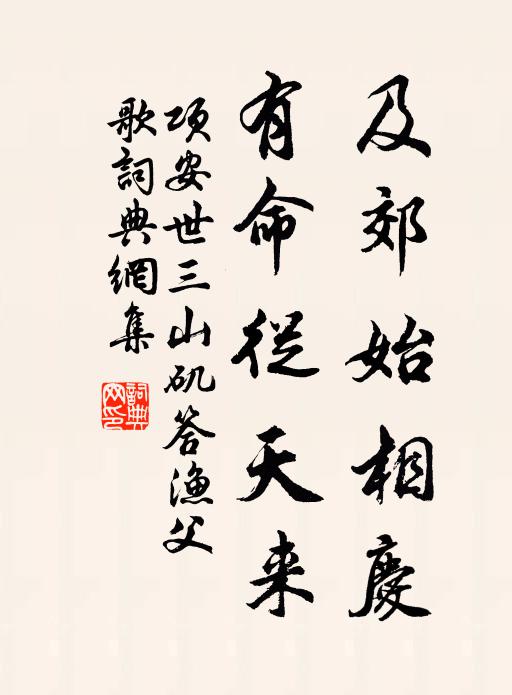 及郊始相慶
有命從天来
項安世三山矶答漁父
歌詞典網集
詞典
网印